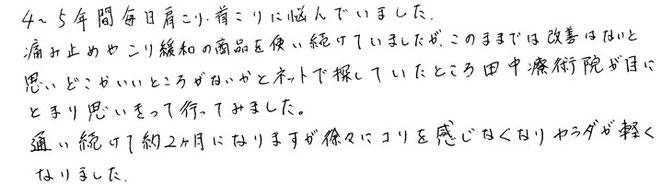 4～5年間毎日肩こり・首こりに悩んでいました。
痛み止めやコリ緩和の商品を使い続けていましたが、このままでは改善はないと
思いどこかいいところがないかとネットで探していたところ田中療術院が目に
とまり思いきって行ってみました。
通い続けて約2ヶ月になりますが徐々にコリを感じなくなりカラダが軽く
なりました。